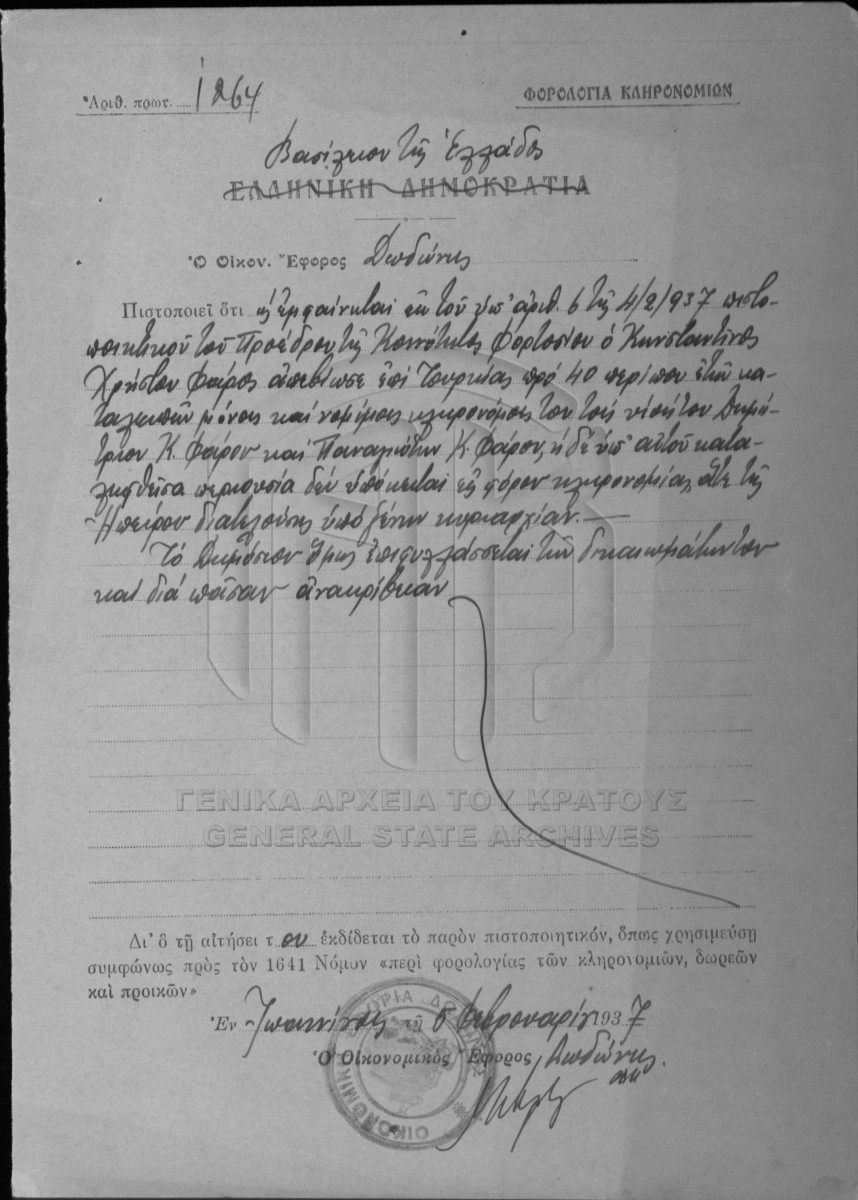 Ἀριθ. πρωτ. 1264
ΦΟΡΟΛΟΓΙΑ ΚΛΗΡΟΝΟΜΙΩΝ
Βασίλειον τῆς Ἑλλάδος
ΕΛΛΗΝΙΚΗ ΔΗΜΟΚΡΑΤΙΑ
Ὁ Οἰκον. Ἔφορος Δωδώνης
Πιστοποιεῖ ὅτι ὡς ἐμφαίνεται ἐκ τοῦ ὑπ' ἀριθ. 6 τῆς 4/2/937 πιστο-
ποιητικοῦ τοῦ Προέδρου τῆς Κοινότητος Φορτοσίου ὁ Κωνσταντῖνος
Χρήστου Φάρος ἀπεβίωσε ἐπὶ Τουρκίας πρό 40 περίπου ἐτῶν κα-
ταλειπών μόνους καὶ νομίμους κληρονόμους του τούς υἱούς του Δημή-
τριον Κ. Φάρον καὶ Παναγιώτην Κ. Φάρον, ἡ δὲ ὑπ' αὐτοῦ κατα-
ληφθεῖσα περιουσία δέν ὑπόκειται εἰς φόρον κληρονομίας ἅτε τῆς
Ἠπείρου διατελούσης ὑπό ξένην κυριαρχίαν.
Τό Δημόσιον ὅμως ἐπιφυλάσσεται τῶν δικαιωμάτων του
καὶ διά πᾶσαν ἀνακρίβειαν
ΓΕΝΙΚΑ ΑΡΧΕΙΑ ΤΟΥ ΚΡΑΤΟΥΣ
GENERAL STATE ARCHIVES
Δι' ὃ τῇ αἰτήσει τ ου ἐκδίδεται τὸ παρὸν πιστοποιητικόν, ὅπως χρησιμεύσῃ
συμφώνως πρὸς τὸν 1641 Νόμον «περὶ φορολογίας τῶν κληρονομιῶν, δωρεῶν
καὶ προικῶν»
Ἐν Ἰωαννίνοις τῇ 6 Φεβρουαρίου 1937
Ὁ Οἰκονομικὸς Ἔφορος Δωδώνης
ΟΙΚΟΝΟΜΙΚΗ ΕΦΟΡΙΑ ΔΩΔΩΝΗΣ